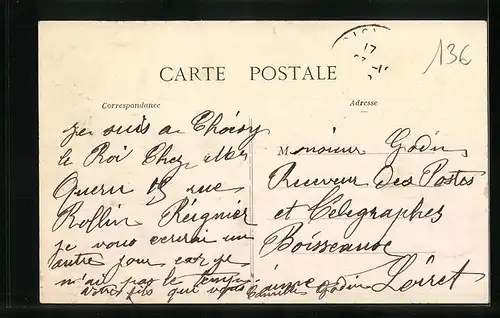 136
CARTE POSTALE
Correspondance
Adresse
je suis a Choisy
le Roi Chez Mr
Guern 15 rue
Rollin Régnier
je vous ecrirai un
autres jour car je
n'ai pas le temps
votre fils qui vous aime
Camille Godin
Monsieur Godin
Receveur des Postes
et Télégraphes
Boisseaux
Loiret